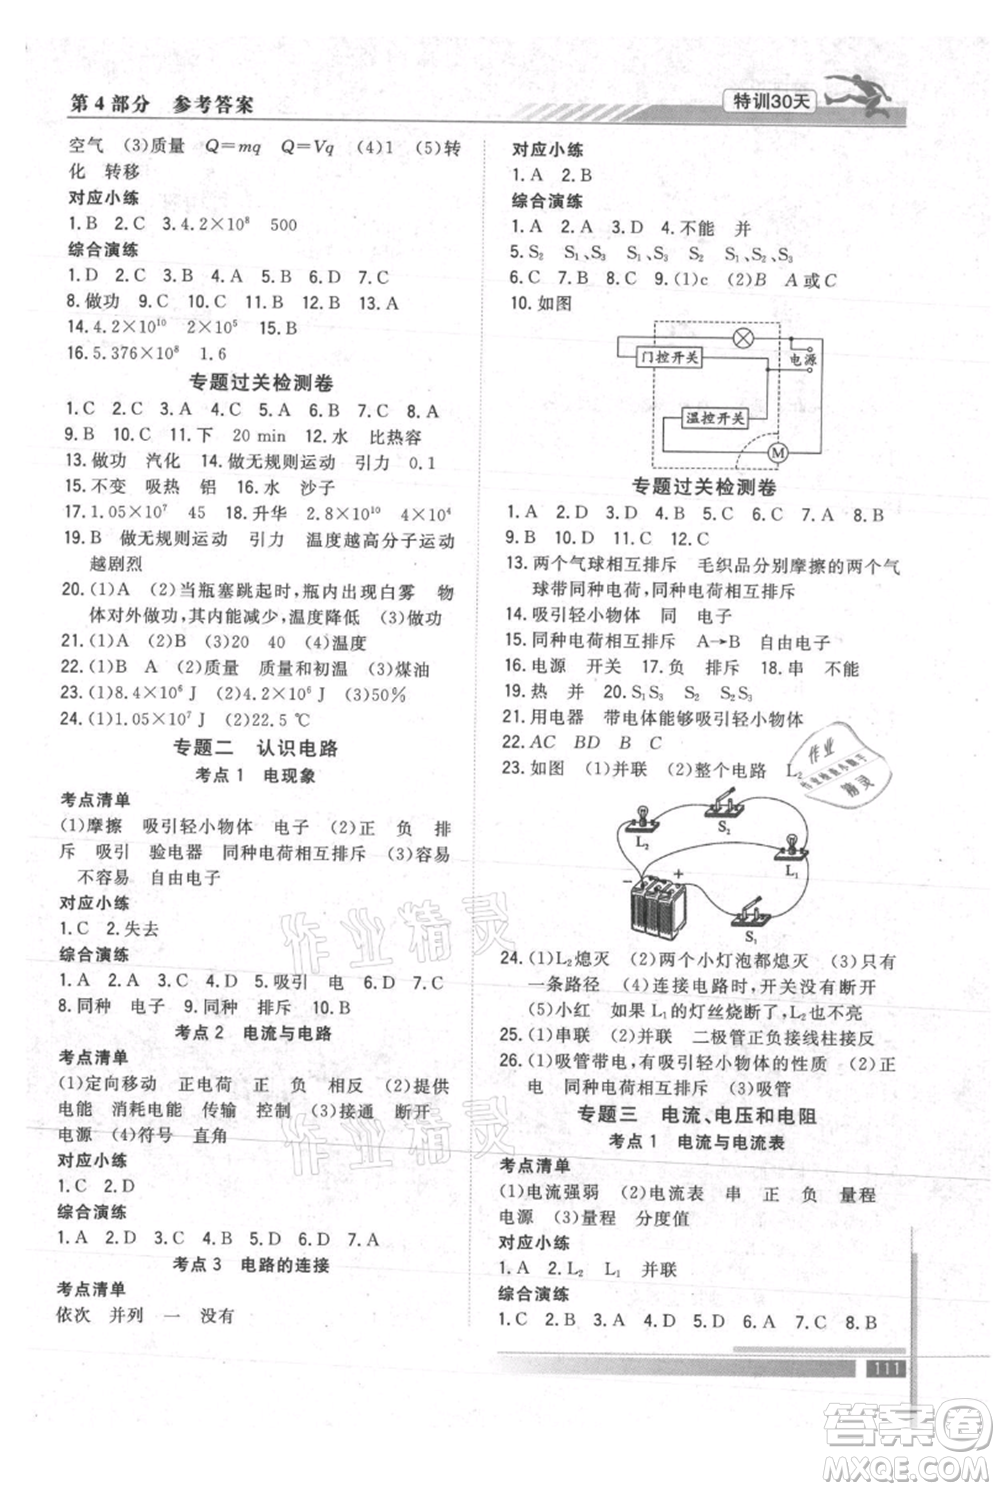 第4部分 参考答案
特训30天
空气 (3)质量 Q=mq Q=Vq (4)1 (5)转
化 转移
对应小练
1.B 2.C 3.4.2×10⁸ 500
综合演练
1.D 2.C 3.B 4.A 5.D 6.D 7.C
8.做功 9.C 10.C 11.D 12.B 13.A
14.4.2×10¹⁰ 2×10⁵ 15.B
16.5.376×10⁸ 1.6
专题过关检测卷
1.C 2.C 3.A 4.C 5.A 6.B 7.C 8.A
9.B 10.C 11.下 20 min 12.水 比热容
13.做功 汽化 14.做无规则运动 引力 0.1
15.不变 吸热 铝 16.水 沙子
17.1.05×10⁷ 45 18.升华 2.8×10¹⁰ 4×10⁴
19.B 做无规则运动 引力 温度越高分子运动
越剧烈
20.(1)A (2)当瓶塞跳起时,瓶内出现白雾 物
体对外做功,其内能减少,温度降低 (3)做功
21.(1)A (2)B (3)20 40 (4)温度
22.(1)B A (2)质量 质量和初温 (3)煤油
23.(1)8.4×10⁶ J (2)4.2×10⁶ J (3)50%
24.(1)1.05×10⁷ J (2)22.5 ℃
专题二 认识电路
考点1 电现象
考点清单
(1)摩擦 吸引轻小物体 电子 (2)正 负 排
斥 吸引 验电器 同种电荷相互排斥 (3)容易
不容易 自由电子
对应小练
1.C 2.失去
综合演练
1.A 2.D 3.C 4.D 5.D 6.吸引 电 7.D
8.同种 电子 9.同种 排斥 10.B
考点2 电流与电路
考点清单
(1)定向移动 正电荷 正 负 相反 (2)提供
电能 消耗电能 传输 控制 (3)接通 断开
电源 (4)符号 直角
对应小练
1.C 2.D
综合演练
1.A 2.D 3.C 4.B 5.C 6.D 7.A
考点3 电路的连接
考点清单
依次 并列 一 没有
对应小练
1.A 2.B
综合演练
1.C 2.A 3.D 4.不能 并
5.S₂ S₁、S₃ S₂ S₁、S₂、S₃
6.C 7.B 8.C 9.(1)c (2)B A或C
10.如图
门控开关
温控开关
电源
M
专题过关检测卷
1.A 2.D 3.D 4.B 5.C 6.C 7.A 8.B
9.B 10.D 11.C 12.C
13.两个气球相互排斥 毛织品分别摩擦的两个气
球带同种电荷,同种电荷相互排斥
14.吸引轻小物体 同 电子
15.同种电荷相互排斥 A→B 自由电子
16.电源 开关 17.负 排斥 18.串 不能
19.热 并 20.S₁S₃ S₂ S₂S₃
21.用电器 带电体能够吸引轻小物体
22.AC BD
23.如图 (1)并联 (2)整个电路 L₂
L₂
S₂
L₁
S₁
− +
24.(1)L₂熄灭 (2)两个小灯泡都熄灭 (3)只有
一条路径 (4)连接电路时开关没有断开
(5)小红 如果L₁的灯丝烧断了,L₂也不亮
25.(1)串联 (2)并联 二极管正负接线柱接反
26.(1)吸管带电,有吸引轻小物体的性质 (2)正
电 同种电荷相互排斥 (3)吸管
专题三 电流、电压和电阻
考点1 电流与电流表
考点清单
(1)电流强弱 (2)电流表 串 正 负 量程
电源 (3)量程 分度值
对应小练
1.A 2.L₂ L₁ 并联
综合演练
1.C 2.B 3.A 4.D 5.D 6.D 7.C 8.B
111
作业精灵
作业精灵
答案圈
MXQE.COM